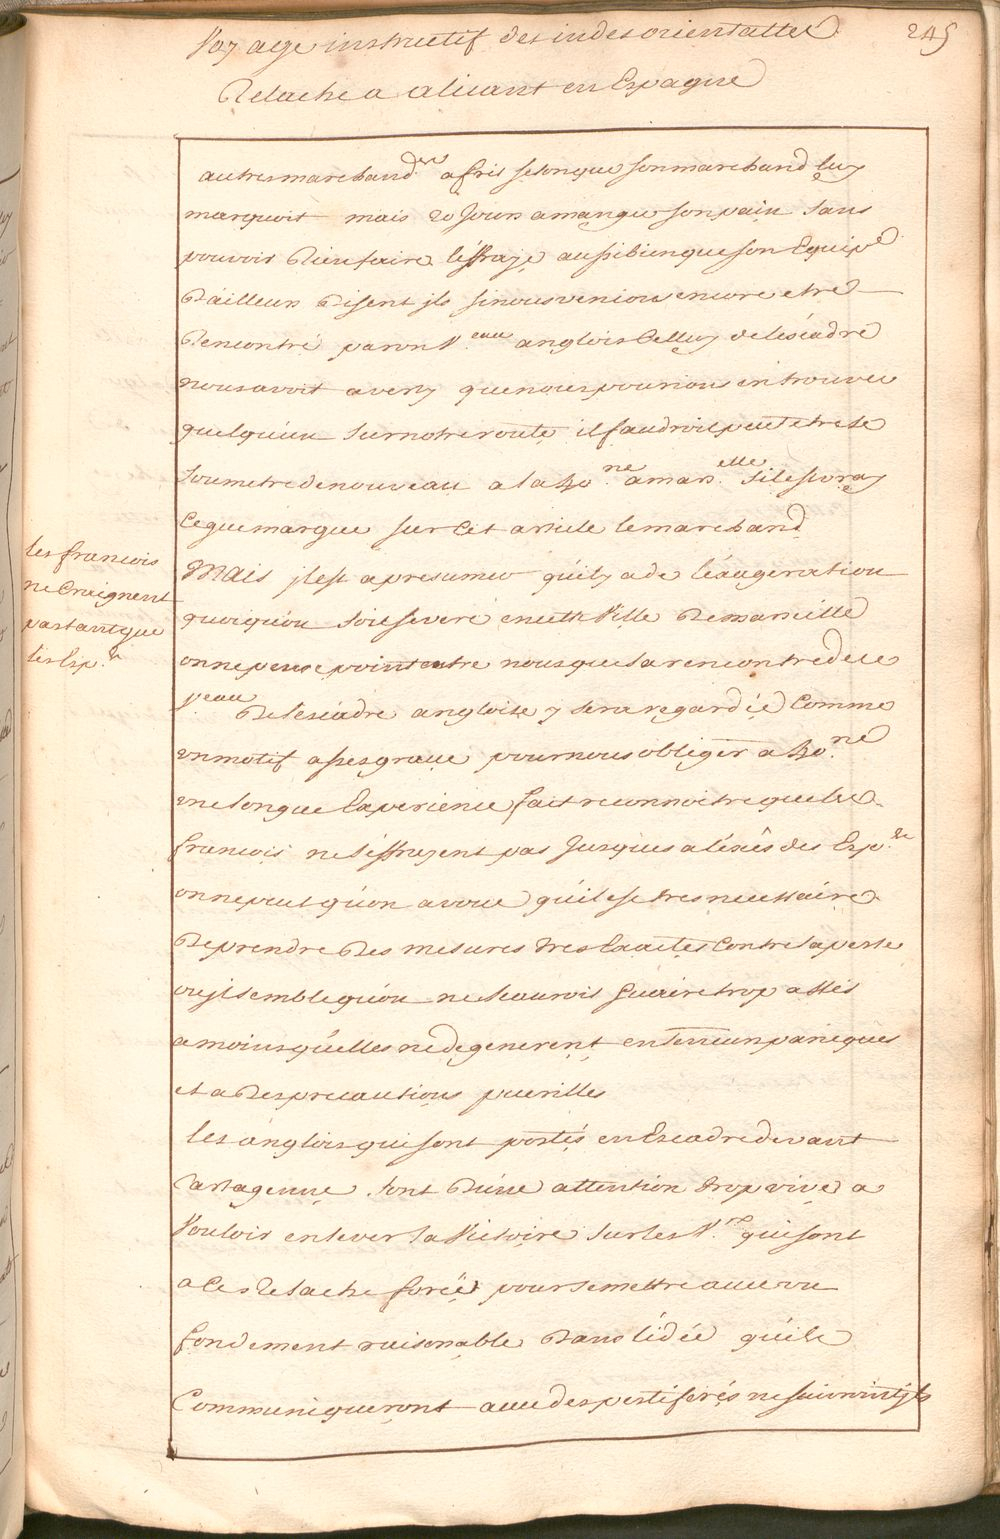 Voyage instructif des indes orientalles 245
Relache a alicant en Espagne
autres marchand.ses afrit selonque son marchand luy
marquoit mais 20 Jours a mangé son pain sans
pouvoir Rien faire l'éffraye aussi bien que son Equip.e
D'ailleurs Disent ils si nous venions encore etre
Rencontré par un V.eau anglois Celluy de lescadre
nous avoit averty que nous pourrions en trouver
quelquun sur notre route il faudroit peut etre se
soumetre de nouveau a la 40.ne a mars.elle sil est vray
Ce que marque sur Cet article le marchand
Mais jl est a presumer quil y a de l'éxageration
quoi qu'on soit severe en cette Ville De marseille
on ne pense point entre nous que la rencontre de ce
V.eau De lescadre angloise y sera regardéé Comme
un motif assez grave pour nous obliger a 40.ne
une longue Experience fait reconnoitre que les
francois ne s'éffrayent pas Jusques a léxcés des Esp.ls
on ne peut qu'on avoue qu'il est tres necessaire
De prendre Des mesures tres Exactes Contre la peste
ou jl semble qu'on ne scauroit guaire trop assés
a moins qu'elles ne degenerent en terreurs paniques
et a Des precautions puerilles
les anglois qui sont postés en Escadre devant
Cartagenne sont D'une attention trop vive a
Vouloir enlever la Victoire sur les V.x qui sont
a Ces Relache forcéé pour se mettre avec un
fondement raisonable Dans lidée qu'ils
Communiqueront avec des pestiferés ne suivront jls
les francois
ne Craignent
pas tant que
les Esp.ls